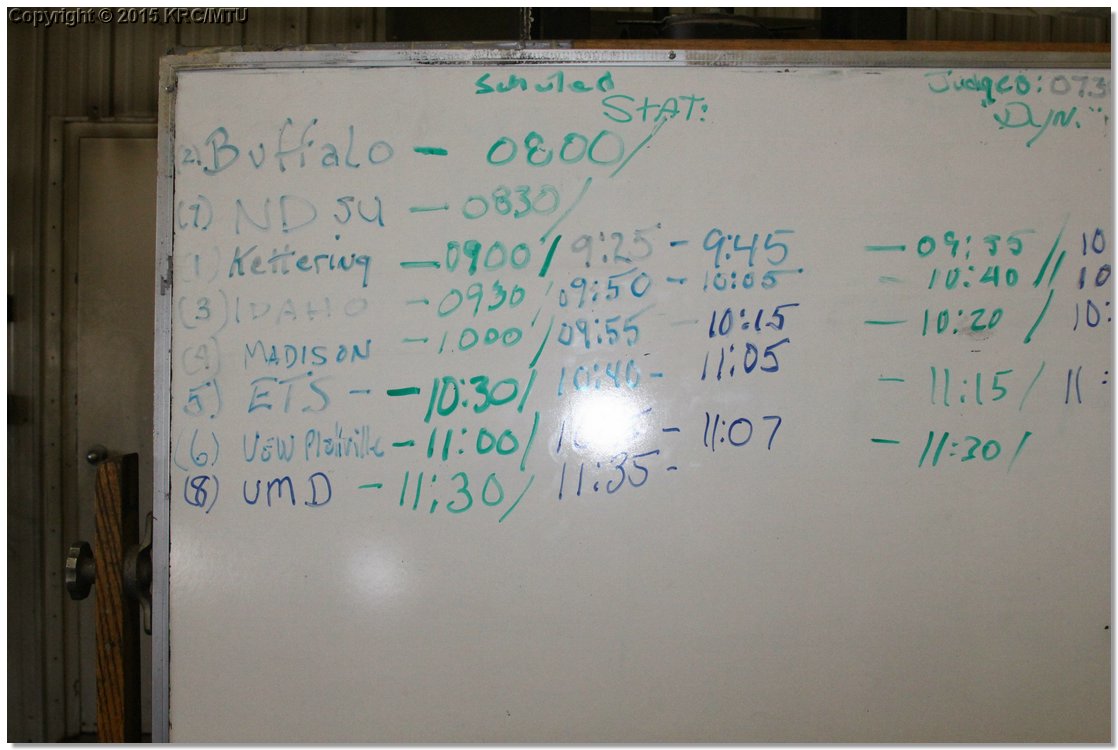 Copyright © 2015 KRC/MTU
Schuled Judges: 073
STAT: DYN.
2. Buffalo - 0800/
(7) NDSU - 0830/
(1) Kettering - 0900/ 9:25 - 9:45 - 09:55 / 10
(3) IDAHO - 0930/ 09:50 - 10:05 - 10:40 // 10
(4) MADISON - 1000/ 09:55 - 10:15 - 10:20 / 10:
5) ETS - - 10:30/ 10:40 - 11:05 - 11:15 / 11:
(6) UEW - 11:00/ - 11:07 - 11:30/
(8) UMD - 11:30/ 11:35 -